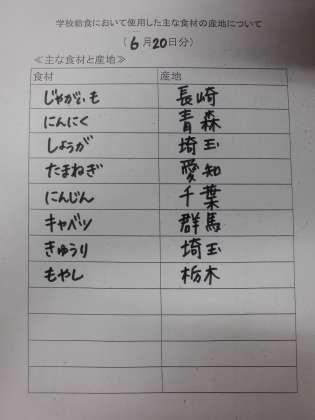 学校給食において使用した主な食材の産地について
(6月20日分)
≪主な食材と産地≫
食材 産地
じゃがいも 長崎
にんにく 青森
しょうが 埼玉
たまねぎ 愛知
にんじん 千葉
キャベツ 群馬
きゅうり 埼玉
もやし 栃木